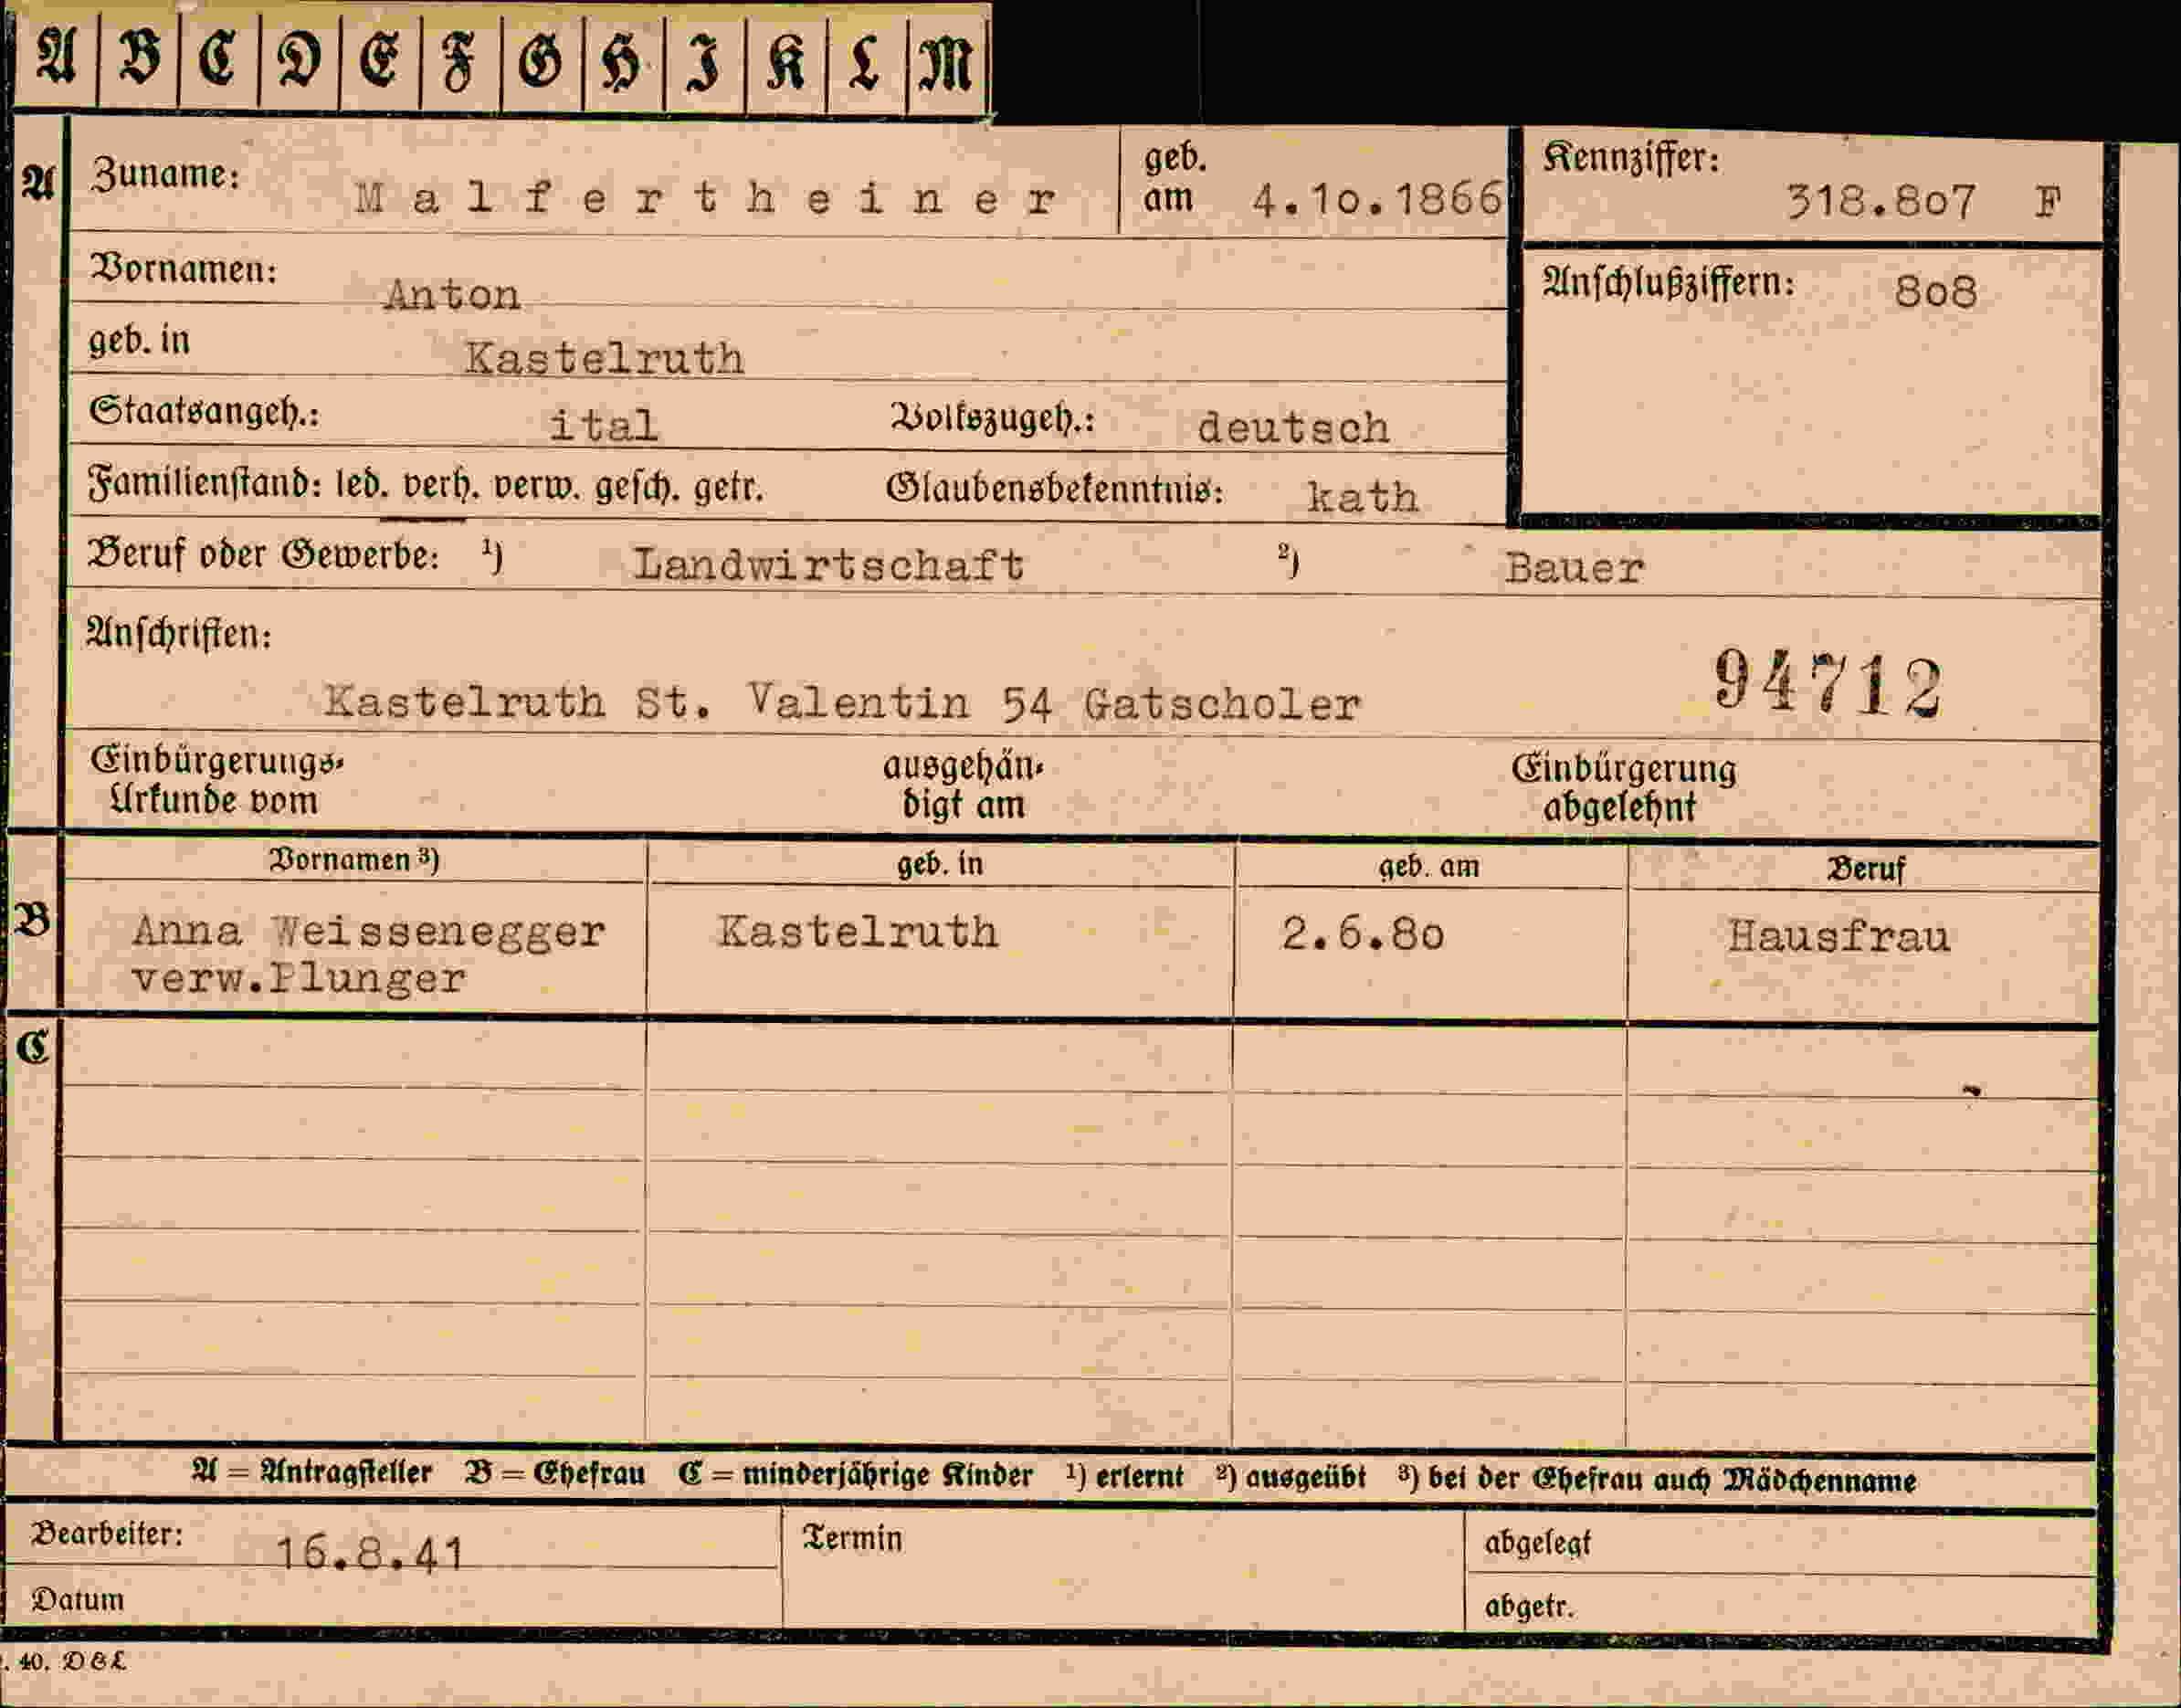 A B C D E F G H I K L M
A Zuname: Malfertheiner geb. am 4.10.1866 Kennziffer: 318.807 F
Vornamen: Anton Anschlußziffern: 808
geb. in Kastelruth
Staatsangeh.: ital Volkszugeh.: deutsch
Familienstand: led. verh. verw. gesch. getr. Glaubensbekenntnis: kath
Beruf oder Gewerbe: ¹) Landwirtschaft ²) Bauer
Anschriften:
Kastelruth St. Valentin 54 Gatscholer 94712
Einbürgerungs- ausgehän- Einbürgerung
Urkunde vom digt am abgelehnt
Vornamen ³) geb. in geb. am Beruf
B Anna Weissenegger Kastelruth 2.6.80 Hausfrau
verw.Plunger
C
A = Antragsteller B = Ehefrau C = minderjährige Kinder ¹) erlernt ²) ausgeübt ³) bei der Ehefrau auch Mädchenname
Bearbeiter: 16.8.41 Termin abgelegt
Datum abgetr.
. 40. D&L